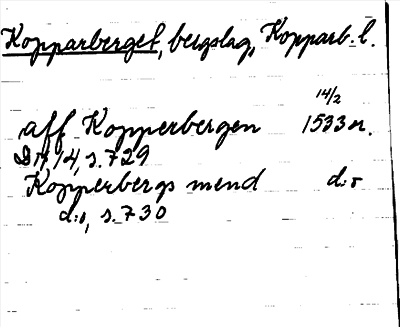 Kopparberget, bergslag, Kopparb. l.
14/2
aff Kopperbergen 1533 n.
D N, 14, s. 729
Kopperbergs mend d:o
d:o, s. 730